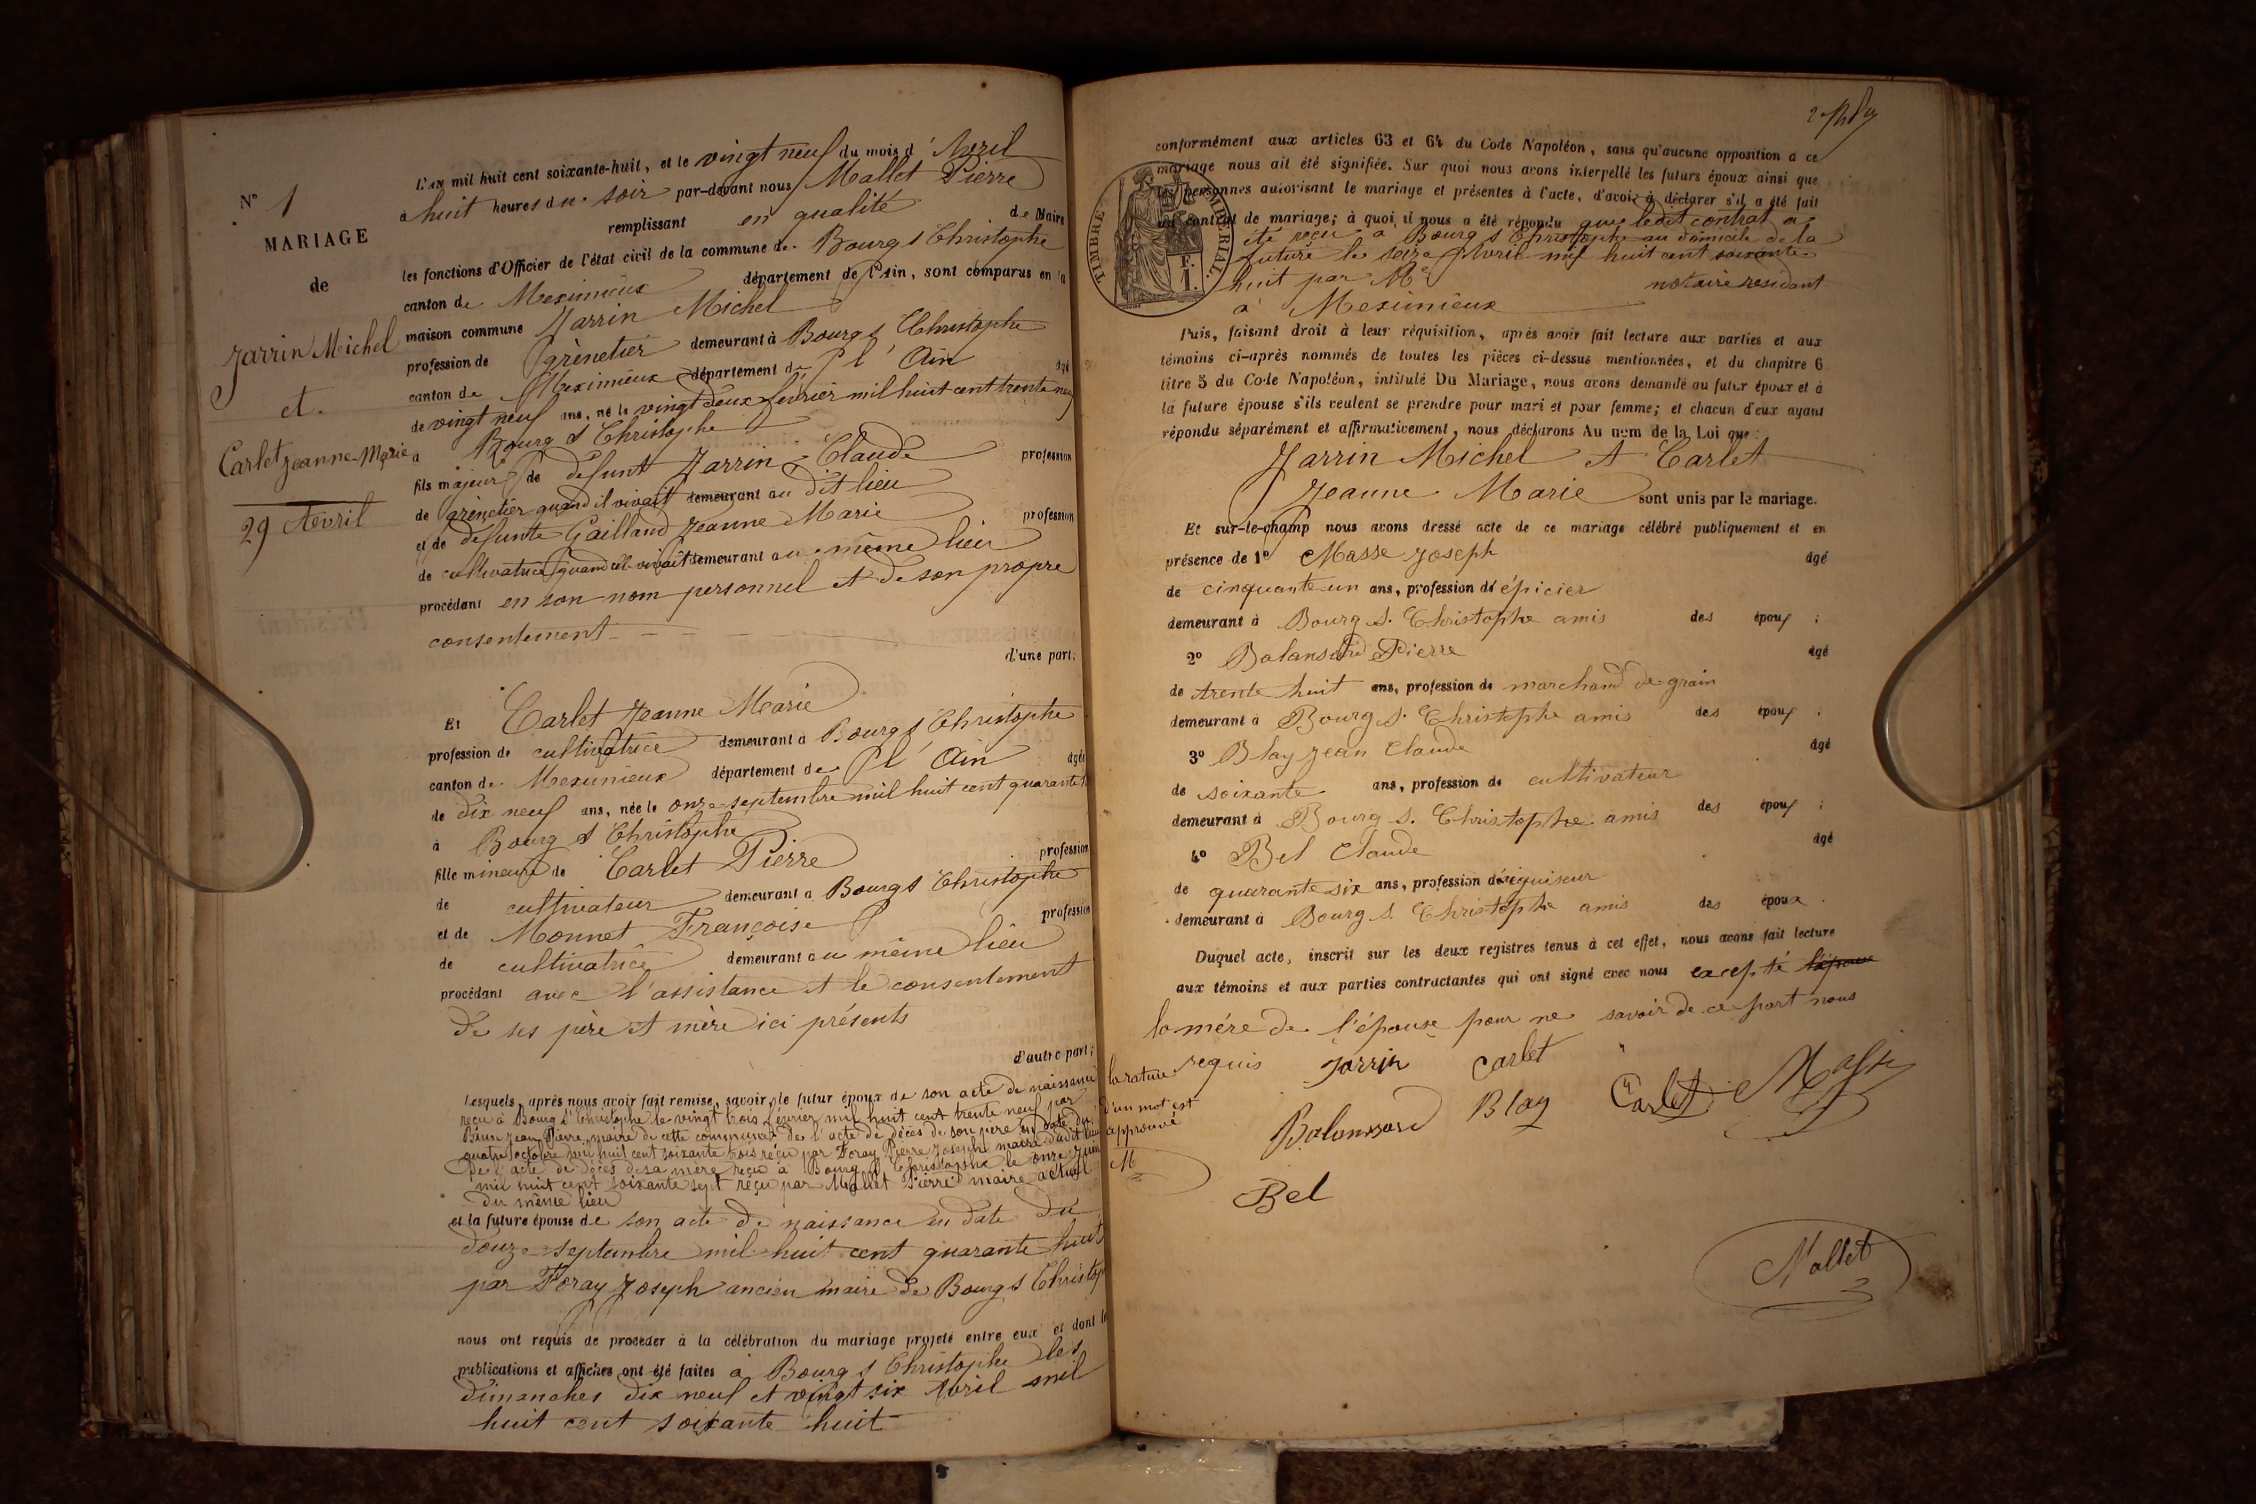 N° 1
MARIAGE
de
Jarrin Michel
et
Carlet Jeanne-Marie
29 Avril
L'an mil huit cent soixante-huit, et le vingt neuf du mois d'Avril
à huit heures du soir par-devant nous Mallet Pierre
remplissant en qualité de Maire
les fonctions d'Officier de l'état civil de la commune de Bourg St Christophe
canton de Meximieux département de l'Ain, sont comparus en la
maison commune Jarrin Michel
profession de grènetier demeurant à Bourg St Christophe
canton de Meximieux département de l'Ain âgé
de vingt neuf ans, né le vingt deux février mil huit cent trente neuf
à Bourg St Christophe
fils majeur de défunt Jarrin Claude profession
de grènetier quand il vivait demeurant au dit lieu
et de défunte Gailland Jeanne Marie profession
de cultivatrice quand elle vivait demeurant au même lieu
procédant en son nom personnel et de son propre
consentement
d'une part;
Et Carlet Jeanne Marie
profession de cultivatrice demeurant à Bourg St Christophe
canton de Meximieux département de l'Ain âgée
de dix neuf ans, née le onze septembre mil huit cent quarante
à Bourg St Christophe
fille mineure de Carlet Pierre profession
de cultivateur demeurant à Bourg St Christophe
et de Monnet Françoise profession
de cultivatrice demeurant au même lieu
procédant avec l'assistance et le consentement
de ses père et mère ici présents
d'autre part;
Lesquels, après nous avoir fait remise, savoir, le futur époux de son acte de naissance
reçu à Bourg St Christophe le vingt trois février mil huit cent trente neuf par
Jean Pierre maire de cette commune de l'acte de décès de son père en date du
quatre octobre mil huit cent soixante trois reçu par Foray Pierre Joseph maire dudit lieu
De l'acte de décès de sa mère reçu à Bourg St Christophe le onze juin
mil huit cent soixante sept reçu par Mallet Pierre maire actuel
du même lieu
et la future épouse de son acte de naissance en date du
douze septembre mil huit cent quarante huit
par Foray Joseph ancien maire de Bourg St Christophe
nous ont requis de procéder à la célébration du mariage projeté entre eux et dont les
publications et affiches ont été faites à Bourg St Christophe les
dimanches dix neuf et vingt six Avril mil
huit cent soixante huit
conformément aux articles 63 et 64 du Code Napoléon, sans qu'aucune opposition à ce
mariage nous ait été signifiée. Sur quoi nous avons interpellé les futurs époux ainsi que
les personnes autorisant le mariage et présentes à l'acte, d'avoir à déclarer s'il a été fait
un contrat de mariage; à quoi il nous a été répondu que ledit contrat a
été reçu à Bourg St Christophe au domicile de la
future le seize Avril mil huit cent soixante
huit par Me notaire résidant
à Meximieux
TIMBRE IMPÉRIAL.
1. F.
Puis, faisant droit à leur réquisition, après avoir fait lecture aux parties et aux
témoins ci-après nommés de toutes les pièces ci-dessus mentionnées, et du chapitre 6
titre 5 du Code Napoléon, intitulé Du Mariage, nous avons demandé au futur époux et à
la future épouse s'ils veulent se prendre pour mari et pour femme; et chacun d'eux ayant
répondu séparément et affirmativement, nous déclarons Au nom de la Loi que:
Jarrin Michel et Carlet
Jeanne Marie sont unis par le mariage.
Et sur-le-champ nous avons dressé acte de ce mariage célébré publiquement et en
présence de 1° Masse Joseph âgé
de cinquante un ans, profession d'épicier
demeurant à Bourg St Christophe amis des époux;
2° Balansard Pierre âgé
de trente huit ans, profession de marchand de grain
demeurant à Bourg St Christophe amis des époux;
3° Blay Jean Claude âgé
de soixante ans, profession de cultivateur
demeurant à Bourg St Christophe amis des époux;
4° Bel Claude âgé
de quarante six ans, profession d'éguiseur
demeurant à Bourg St Christophe amis des époux.
Duquel acte, inscrit sur les deux registres tenus à cet effet, nous avons fait lecture
aux témoins et aux parties contractantes qui ont signé avec nous excepté l'épouse
la mère de l'épouse pour ne savoir de ce part nous
requis Jarrin Carlet
la rature
d'un mot est
approuvé
M
Balansard Blay Carlet Masse
Bel
Mallet